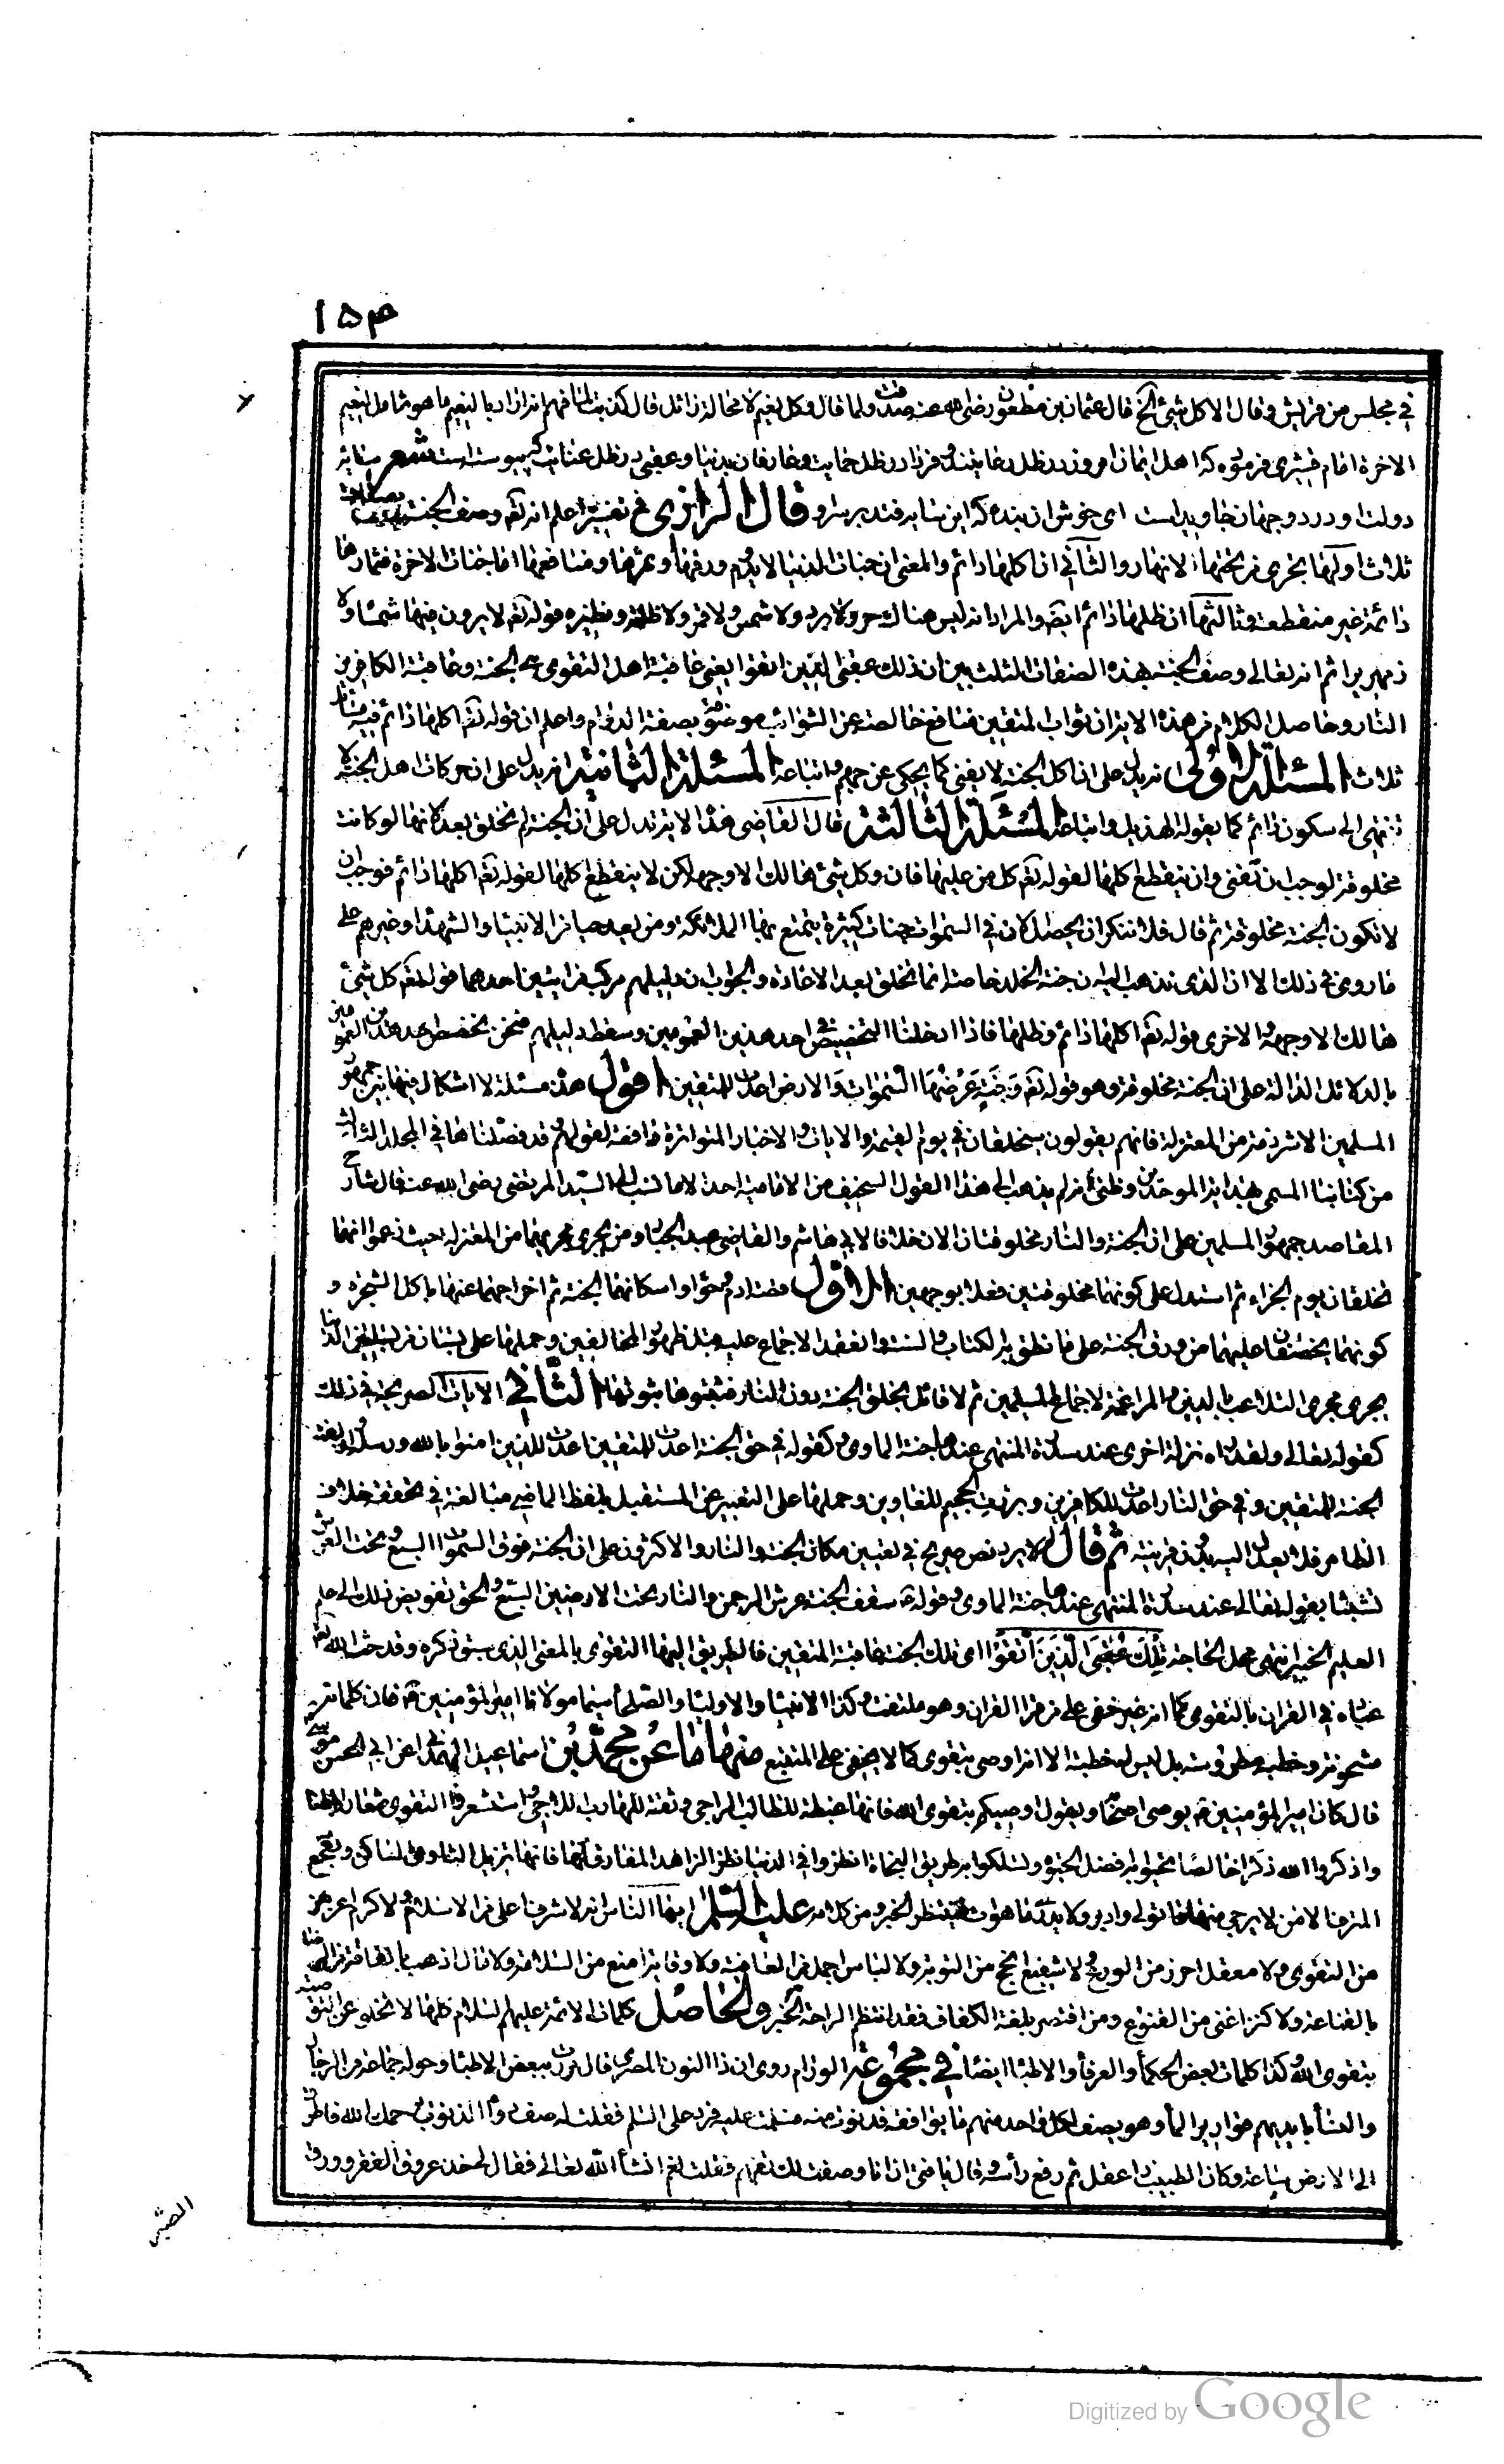 ١٥٣
في مجلس من قريش وقال الا كل شئ الخ قال عثمان بن مظعون رضى الله عنه صدقت ولما قال وكل نعيم لا محالة زائل قال كذبت لما فهم انه اراد بالنعيم ما هو شامل لنعيم
الاخرة امام قشيرى فرموده كه اهل ايمان امروز در ظل رعايتند و فردا در ظل حمايت وعارفان بدنيا وعقبى در ظل عنايت كه پيوست است شعر سايه
دولت او در دو جهان جاويد است اى خوش ان بنده كه اين سايه فتد بر سر او قال الرازى فى تفسيره اعلم انه تعالى وصف الجنة بصفات
ثلاث اولها تجرى من تحتها الانهار والثانى ان اكلها دائم والمعنى ان جنات الدنيا لا يدوم ورقها وثمرها ومنافعها اما جنات الاخرة فثمارها
دائمة غير منقطعة وثالثها ان ظلها دائم ايضا والمراد انه ليس هناك حر ولا برد ولا شمس ولا قمر ولا ظلمة ونظيره قوله تعالى لا يرون فيها شمسا ولا
زمهريرا ثم انه تعالى لما وصف الجنة بهذه الصفات الثلث بين ان ذلك عقبى الذين اتقوا يعنى عاقبة اهل التقوى هى الجنة وعاقبة الكافرين
النار وحاصل الكلام من هذه الاية ان ثواب المتقين منافع خالصة عن الشوائب موصوفة بصفة الدوام واعلم ان قوله تعالى اكلها دائم فيه مسائل
ثلاث المسئلة الاولى انه يدل على ان اكل الجنة لا يفنى كما يحكى عن جهم واتباعه المسئلة الثانية انه يدل على ان حركات اهل الجنة لا
تنتهى الى سكون دائم كما يقوله ابو الهذيل واتباعه المسئلة الثالثة قال القاضى هذه الاية تدل على ان الجنة لم تخلق بعد لانها لو كانت
مخلوقة لوجب ان تفنى وان ينقطع اكلها لقوله تعالى كل من عليها فان وكل شئ هالك الا وجهه لكن لا ينقطع اكلها لقوله تعالى اكلها دائم فوجب ان
لا تكون الجنة مخلوقة ثم قال فلا ننكر ان يحصل الان في السموات جنات كثيرة يتمتع بها الملائكة ومن يعد حيا من الانبياء والشهداء وغيرهم على
ما روى فى ذلك الا ان الذى نذهب اليه ان جنة الخلد خاصة انما تخلق بعد الاعادة والجواب ان دليلهم مركب من ايتين احدهما قوله تعالى كل شئ
هالك الا وجهه والاخرى قوله تعالى اكلها دائم وظلها فاذا ادخلنا التخصيص فى احد هذين العمومين سقط دليلهم فنحن نخصص احد هذين العمومين
بالدلائل الدالة على ان الجنة مخلوقة وهو قوله تعالى وَجَنَّةٍ عَرْضُهَا السَّمَوَاتُ وَالارض اعدت للمتقين اقول هذه مسئلة لا اشكال فيها بين جمهور
المسلمين الا شرذمة من المعتزلة فانهم يقولون ستخلقان في يوم القيمة والايات والاخبار المتواترة دافعة لقولهم قد فصلناها في المجلد الثالث
من كتابنا المسمى بهداية الموحدين وظنى انه لم يذهب الى هذا القول السخيف من الامامية احد الا ما نسب الى السيد المرتضى رضى الله عنه قال شارح
المقاصد جمهور المسلمين على ان الجنة والنار مخلوقتان الان خلافا لابي هاشم والقاضى عبد الجبار ومن يجرى مجريهما من المعتزلة حيث زعموا انهما
تخلقان يوم الجزاء ثم استدل على كونهما مخلوقتين فعلا بوجهين الاول قصة ادم وحوا واسكانهما الجنة ثم اخراجهما عنها باكل الشجرة و
كونهما يخصفان عليهما من ورق الجنة على ما نطق به الكتاب والسنة وانعقد الاجماع عليه قبل ظهور المخالفين وحملها على بستان من بساتين الدنيا
يجرى مجرى التلاعب بالدين والمراغمة لاجماع المسلمين ثم لا قائل بخلق الجنة دون النار فثبوتها ثبوتها الثاني الايات الصريحة في ذلك
كقوله تعالى ولقد راه نزلة اخرى عند سدرة المنتهى عندها جنة الماوى وكقوله في حق الجنة اعدت للمتقين اعدت للذين امنوا بالله ورسله وازلفت
الجنة للمتقين وفي حق النار اعدت للكافرين وبرزت الجحيم للغاوين وحملها على التعبير عن المستقبل بلفظ الماضى مبالغة في تحققه خلاف
الظاهر فلا يعدل اليه بدون قرينة ثم قال لم يرد نص صريح في تعيين مكان الجنة والنار والاكثرون على ان الجنة فوق السموات السبع وتحت العرش
تشبثا بقوله تعالى عند سدرة المنتهى عندها جنة الماوى وقوله سقف الجنة عرش الرحمن والنار تحت الارضين السبع والحق تفويض ذلك الى علم
العليم الخبير انتهى محل الحاجة تِلْكَ عُقْبَى الَّذِينَ اتَّقَوْا اى تلك الجنة عاقبة المتقين فالطريق اليها التقوى بالمعنى الذى سبق ذكره وقد حث الله تعالى
عباده في القران بالتقوى كما انه غير خفى على من قرا القران وهو ملتفت وكذا الانبياء والاولياء والصلحاء سيما مولانا امير المؤمنين فان كلماته
مشحونة وخطبه مطروسة به بل ليس له خطبة الا انه اوصى بتقوى كما لا يخفى على المتتبع منها ما عن محمد بن اسماعيل الهمدانى عن ابي الحسن موسى
قال كان امير المؤمنين يوصى اصحابه ويقول اوصيكم بتقوى الله فانها غبطة للطالب الراجى وثقة للهارب اللاجى استشعروا التقوى شعارا باطنا
واذكروا الله ذكرا خالصا تحيوا به افضل الحيوة وتسلكوا به طريق النجاة انظروا في الدنيا نظر الزاهد المفارق لها فانها تزيل الثاوى الساكن وتفجع
المترف الامن لا يرجى منها ما تولى وادبر ولا يدرى ما هو ات فينتظر الخبر ومن كلامه عليه السلام ايها الناس انه لا شرف اعلى من الاسلام ولا كرم اعز
من التقوى ولا معقل احرز من الورع ولا شفيع انجح من التوبة ولا لباس اجمل من العافية ولا وقاية امنع من السلامة ولا مال اذهب بالفاقة من الرضا
بالقناعة ولا كنز اغنى من القنوع ومن اقتصر بلغة الكفاف فقد انتظم الراحة الخبر والحاصل كلمات الائمة عليهم السلام كلها لا تخلو عن التوصية
بتقوى الله وكذا كلمات بعض الحكماء والعرفاء والاطباء ايضا في مجموعة الورام روى ان ذا النون المصرى قال مررت ببعض الاطباء وحوله جماعة من الرجال
والنساء بايديهم قوارير الماء وهو يصف لكل واحد منهم ما يوافقه فدنوت منه فسلمت عليه فرد على السلم فقلت له صف دواء الذنوب رحمك الله فاطرق
الى الارض ساعة وكان الطبيب ذا عقل ثم رفع راسه وقال يا فتى ان انا وصفت لك تفهم فقلت نعم انشاء الله تعالى فقال لى خذ عروق الفقر وورق
الصبر
Digitized by Google